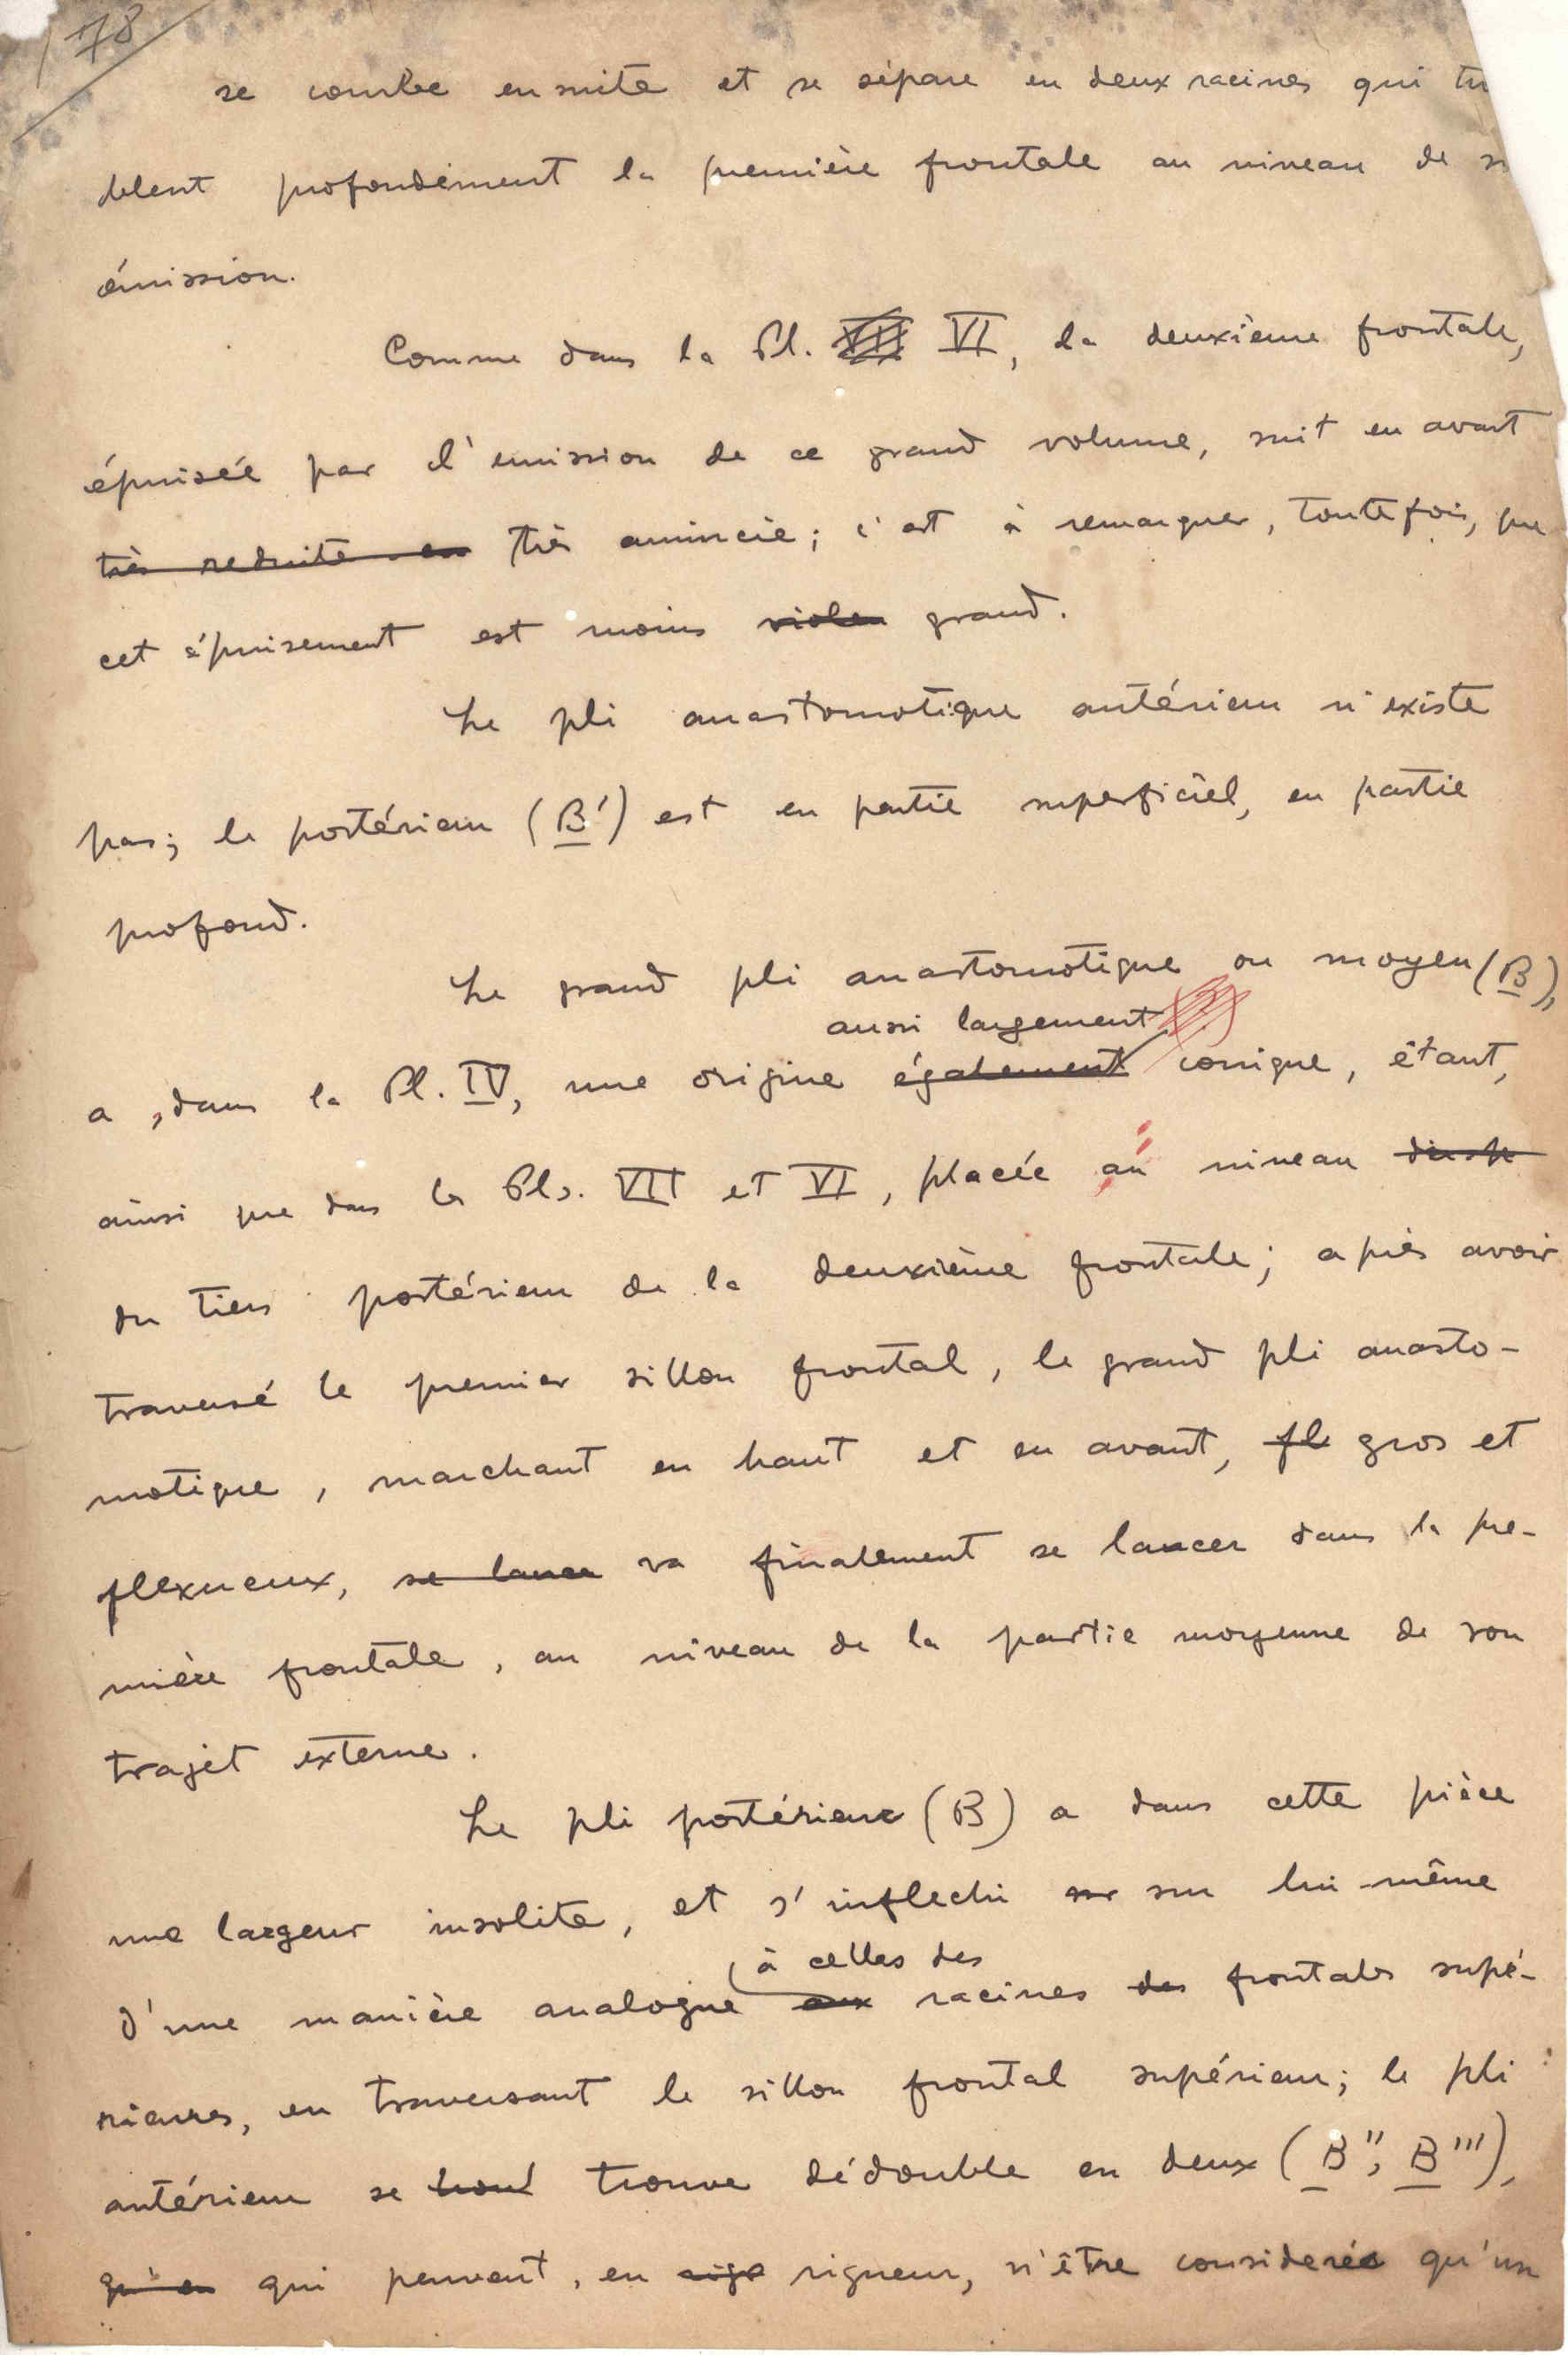 178
se courbe ensuite et se sépare en deux racines qui
blent profondément la première frontale au niveau de
émission.
Comme dans la Pl. VI, la deuxième frontale,
épuisée par l'emission de ce grand volume, suit en avant
très reduite en très amincie; c'est à remarquer, toutefois, que
cet épuisement est moins violen grand.
Le pli anastomotique antérieur n'existe
pas; le postérieur (B') est en partie superficiel, en partie
profond.
Le grand pli anastomotique ou moyen (B),
aussi largement
a, dans la Pl. IV, une origine également conique, étant,
ainsi que dans les Pls. VII et VI, placée au niveau
du tiers postérieur de la deuxième frontale; après avoir
traversé le premier sillon frontal, le grand pli anasto-
motique, marchant en haut et en avant, fl gros et
flexueux, se lance va finalement se lancer dans la pre-
mière frontale, au niveau de la partie moyenne de son
trajet externe.
Le pli postérieur (B) a dans cette pièce
une largeur insolite, et s'inflechi sur sur lui-même
à celles des
d'une manière analogue aux racines des frontales supé-
rieures, en traversant le sillon frontal supérieur; le pli
antérieur se trouve dédouble en deux (B'', B'''),
qu'en qui peuvent, en rigueur, n'être considerés qu'un